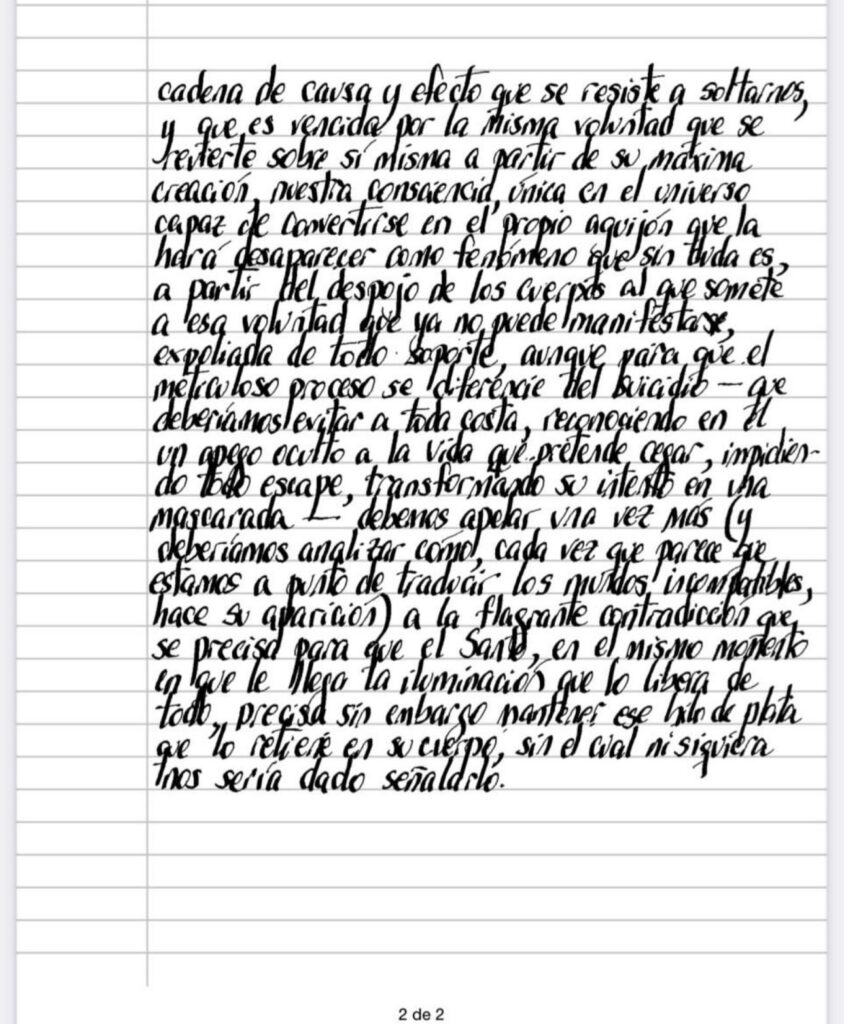 cadena de causa y efecto que se resiste a soltarnos,
y que es vencida por la misma voluntad que se
revierte sobre sí misma a partir de su máxima
creación, nuestra consciencia, única en el universo
capaz de convertirse en el propio aguijón que la
hará desaparecer como fenómeno que sin duda es,
a partir del despojo de los cuerpos al que somete
a esa voluntad que ya no puede manifestarse,
expoliada de todo soporte, aunque para que el
meticuloso proceso se diferencie del suicidio — que
deberíamos evitar a toda costa, reconociendo en él
un apego oculto a la vida que pretende cegar, impidien-
do todo escape, transformando su intento en una
mascarada — debemos apelar una vez más (y
deberíamos analizar cómo, cada vez que parece que
estamos a punto de traducir los mundos incompatibles,
hace su aparición) a la flagrante contradicción que
se precisa para que el Santo, en el mismo momento
en que le llega la iluminación que lo libera de
todo, precisa sin embargo mantener ese hilo de plata
que lo retiene en su cuerpo, sin el cual ni siquiera
nos sería dado señalarlo.
2 de 2